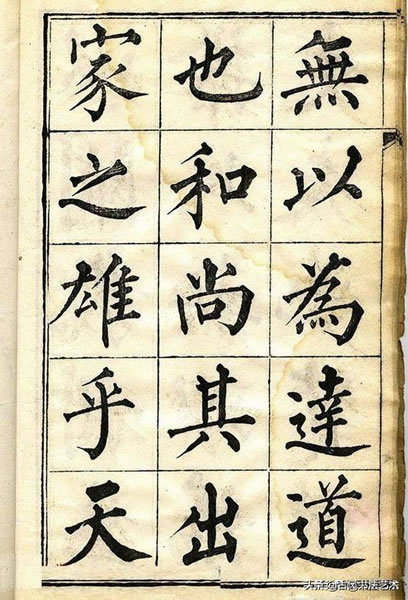 無以為達道
也和尚其出
家之雄乎天
头条@古今书法艺术